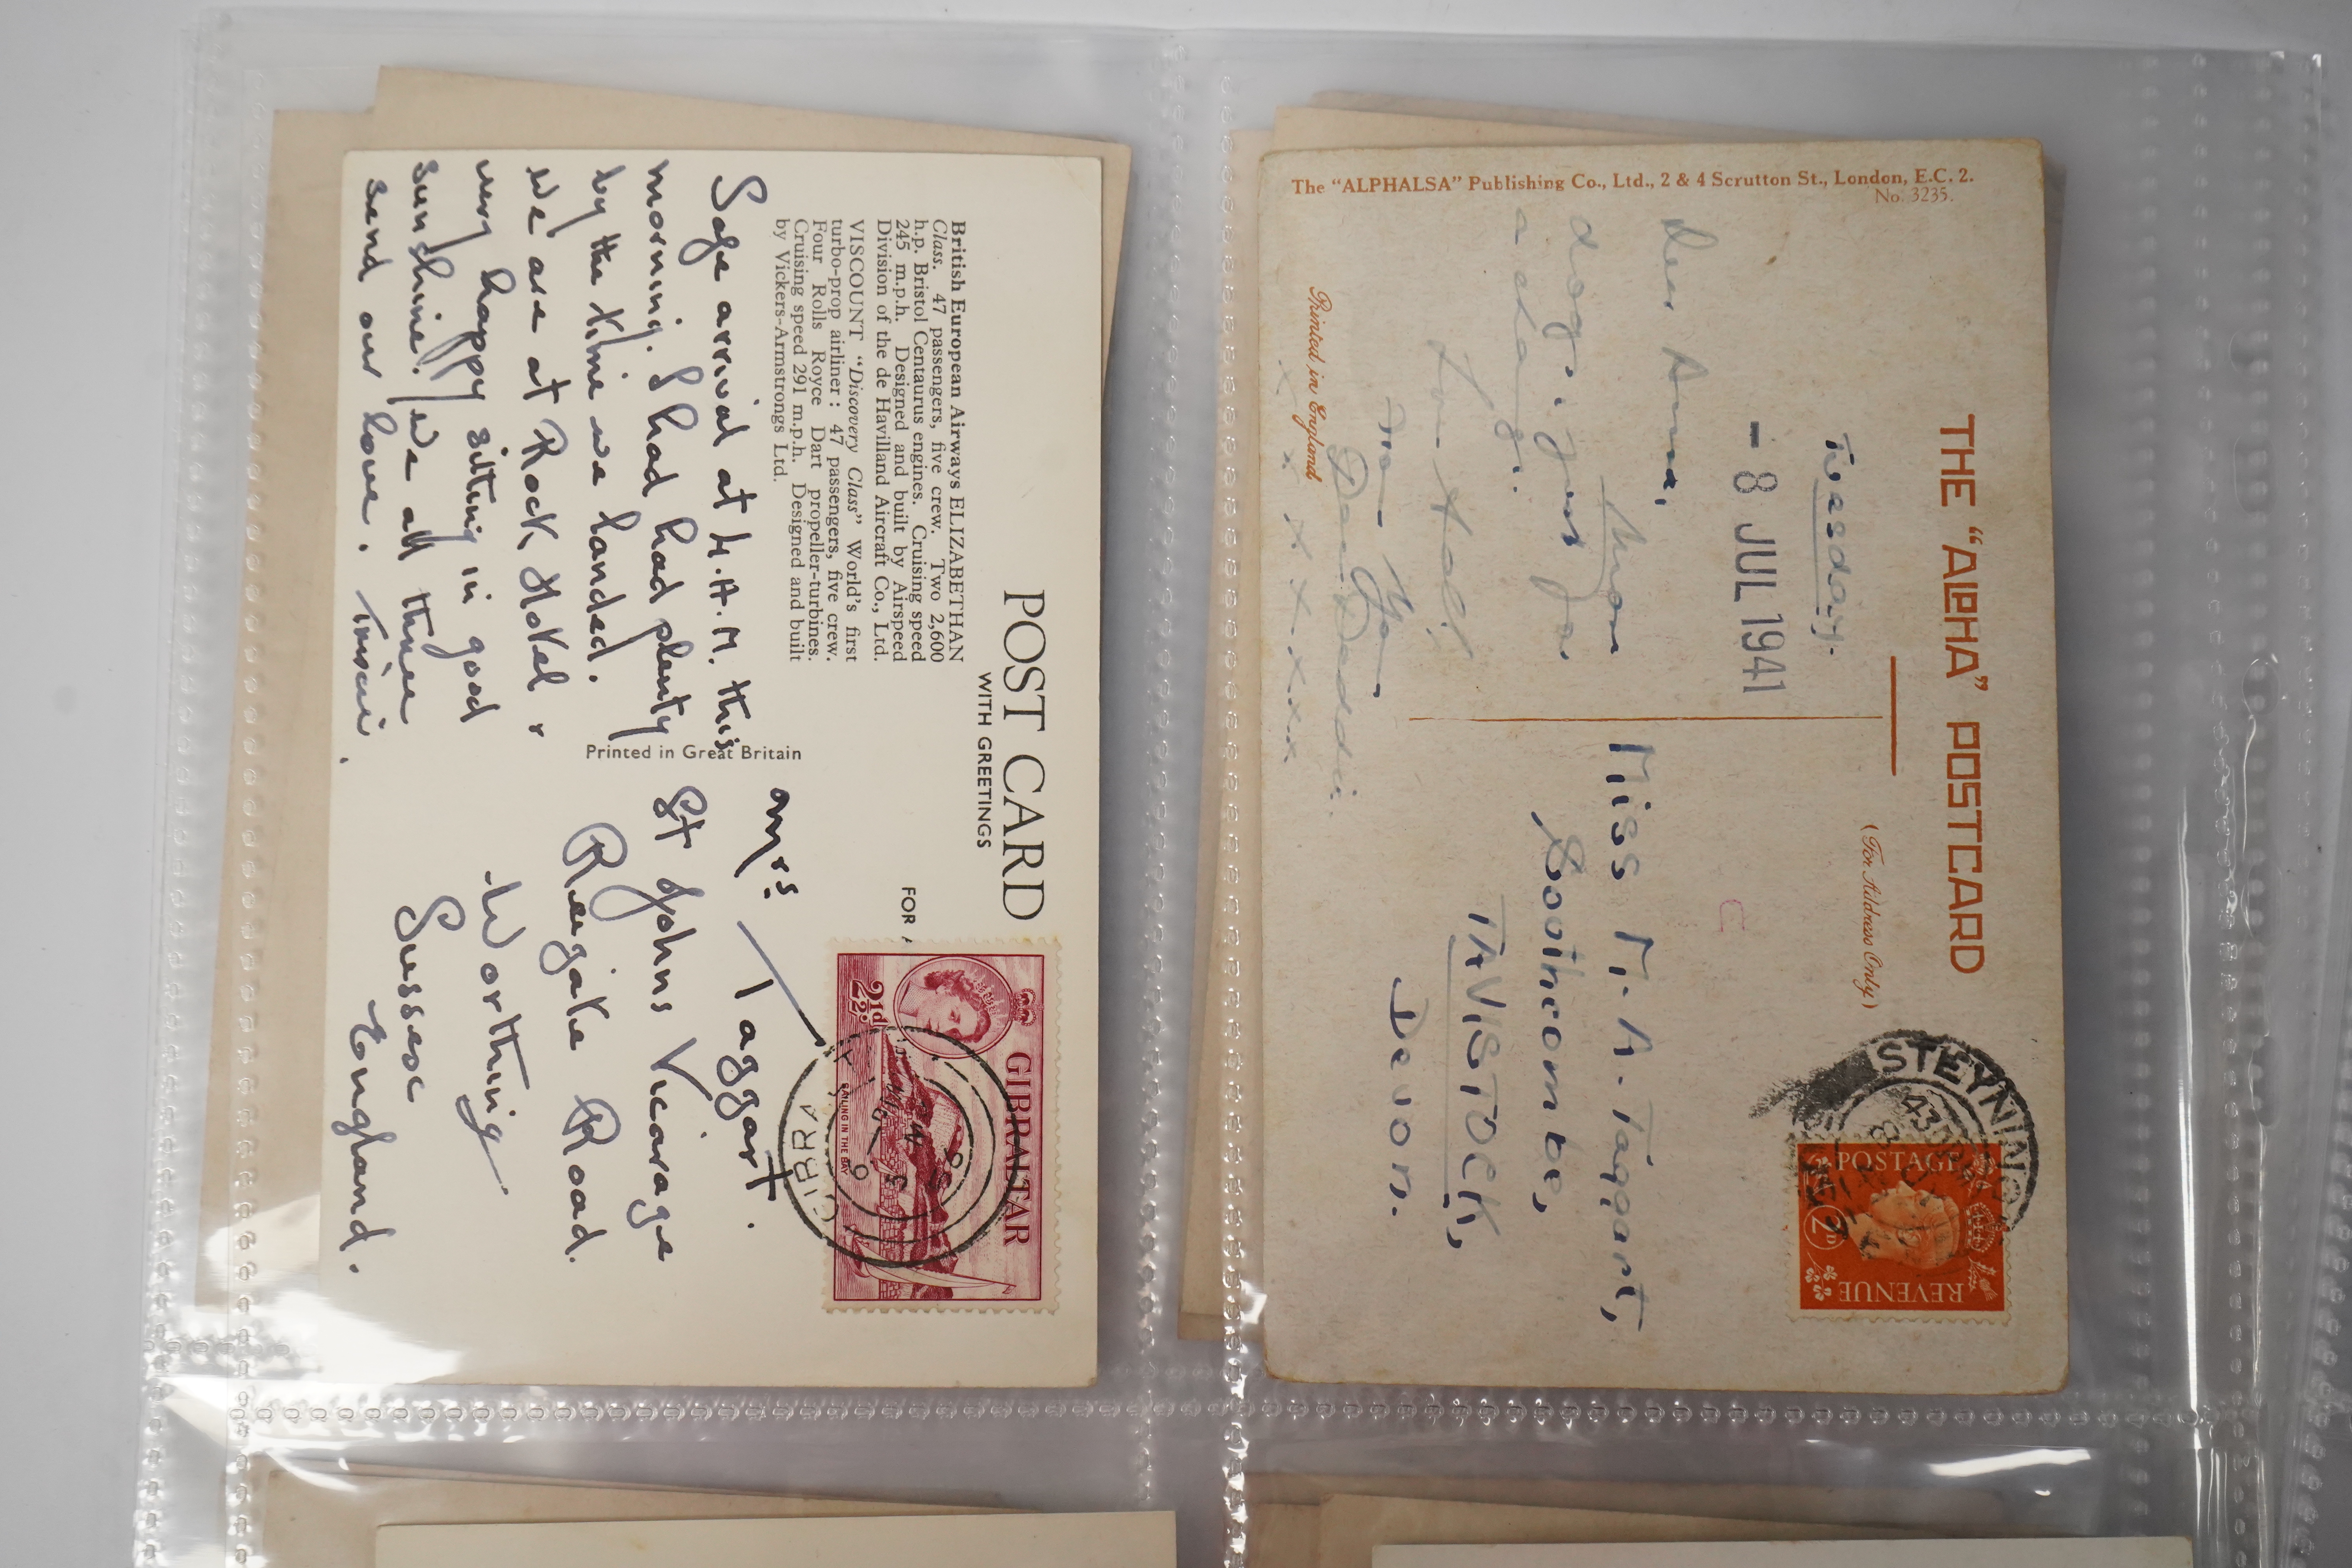 POST CARD
WITH GREETINGS
British European Airways ELIZABETHAN
Class. 47 passengers, five crew. Two 2,600
h.p. Bristol Centaurus engines. Cruising speed
245 m.p.h. Designed and built by Airspeed
Division of the de Havilland Aircraft Co., Ltd.
VISCOUNT "Discovery Class" World's first
turbo-prop airliner: 47 passengers, five crew.
Four Rolls Royce Dart propeller-turbines.
Cruising speed 291 m.p.h. Designed and built
by Vickers-Armstrongs Ltd.
Safe arrival at 4 A.M. this
morning. I had had plenty
by the time we landed.
We are at Rock Hotel &
very happy sitting in good
sunshine. We all three
send our love.
Printed in Great Britain
FOR
Mrs Taggart.
St Johns Vicarage
Reigate Road.
Worthing
Sussex
England.
GIBRALTAR
2½d
SAILING IN THE BAY
GIBRA
THE "ALPHA" POSTCARD
(For Address Only)
The "ALPHALSA" Publishing Co., Ltd., 2 & 4 Scrutton St., London, E.C. 2.
No. 3235.
Printed in England
Tuesday.
- 8 JUL 1941
Dear Anna,
dog, just for
a change.
x x x x x x x
Miss M. A. Taggart,
TAVISTOCK,
Devon.
STEYNING
POSTAGE
REVENUE
2D